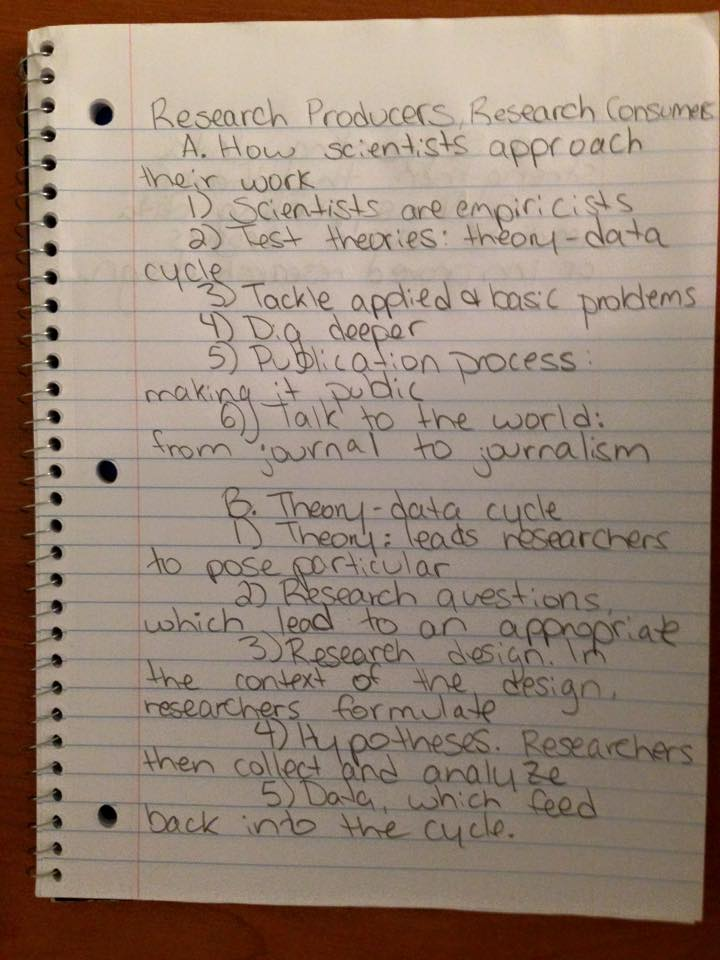 Research Producers, Research Consumers
A. How scientists approach
their work
1) Scientists are empiricists
2) Test theories: theory-data
cycle
3) Tackle applied & basic problems
4) Dig deeper
5) Publication process:
making it public
6) Talk to the world:
from journal to journalism
B. Theory-data cycle
1) Theory: leads researchers
to pose particular
2) Research questions,
which lead to an appropriate
3) Research design. In
the context of the design,
researchers formulate
4) Hypotheses. Researchers
then collect and analyze
5) Data, which feed
back into the cycle.